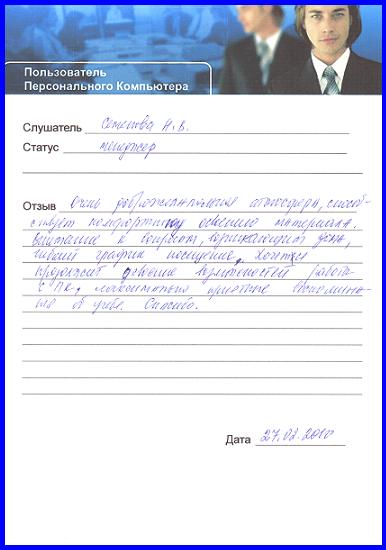 Пользователь
Персонального Компьютера
Слушатель Семенова Н.В.
Статус менеджер
Отзыв Очень доброжелательная атмосфера, способ-
ствует комфортному освоению материала.
Внимание к вопросам, возникающим дома,
гибкий график посещения. Хочется
продолжить освоение возможностей работы
с ПК, максимально приятные воспомина-
ния об учебе. Спасибо.
Дата 27.02.2010